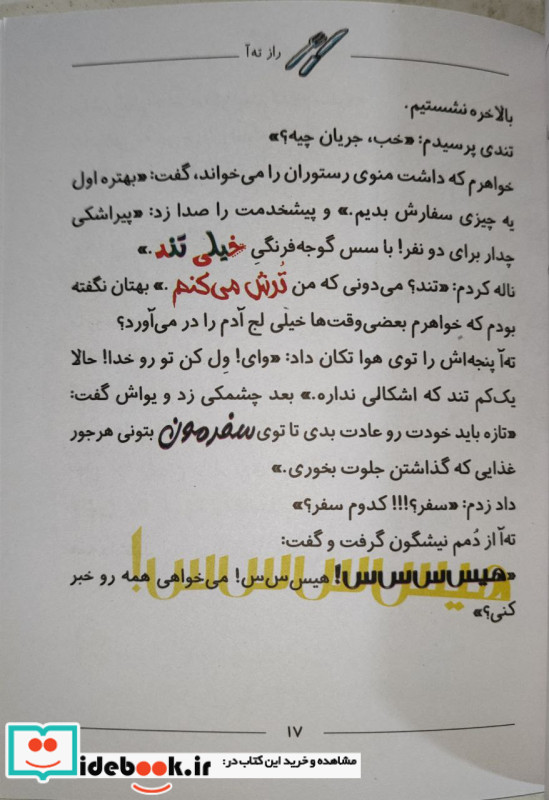 راز ته‌آ
بالاخره نشستیم.
تندی پرسیدم: «خب، جریان چیه؟»
خواهرم که داشت منوی رستوران را می‌خواند، گفت: «بهتره اول
یه چیزی سفارش بدیم.» و پیشخدمت را صدا زد: «پیراشکی
چدار برای دو نفر! با سس گوجه‌فرنگیِ خیلی تند.»
ناله کردم: «تند؟ می‌دونی که من تُرش می‌کنم.» بهتان نگفته
بودم که خواهرم بعضی‌وقت‌ها خیلی لج آدم را در می‌آورد؟
ته‌آ پنجه‌اش را توی هوا تکان داد: «وای! وِل کن تو رو خدا! حالا
یک‌کم تند که اشکالی نداره.» بعد چشمکی زد و یواش گفت:
«تازه باید خودت رو عادت بدی تا توی سفرمون بتونی هرجور
غذایی که گذاشتن جلوت بخوری.»
داد زدم: «سفر؟!!! کدوم سفر؟»
ته‌آ از دُمم نیشگون گرفت و گفت:
«هیس‌س‌س‌س! هیس‌س‌س! می‌خواهی همه رو خبر
کنی؟»
هیس‌س‌س‌س!
۱۷
idebook.ir
مشاهده و خرید این کتاب در: